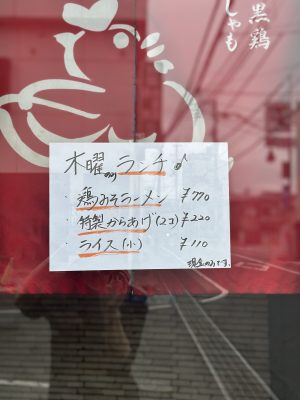 黒鶏
しゃも
木曜のみランチ♪
・鶏みそラーメン ¥770
・特製からあげ(2コ) ¥220
・ライス(小) ¥110
現金のみです。